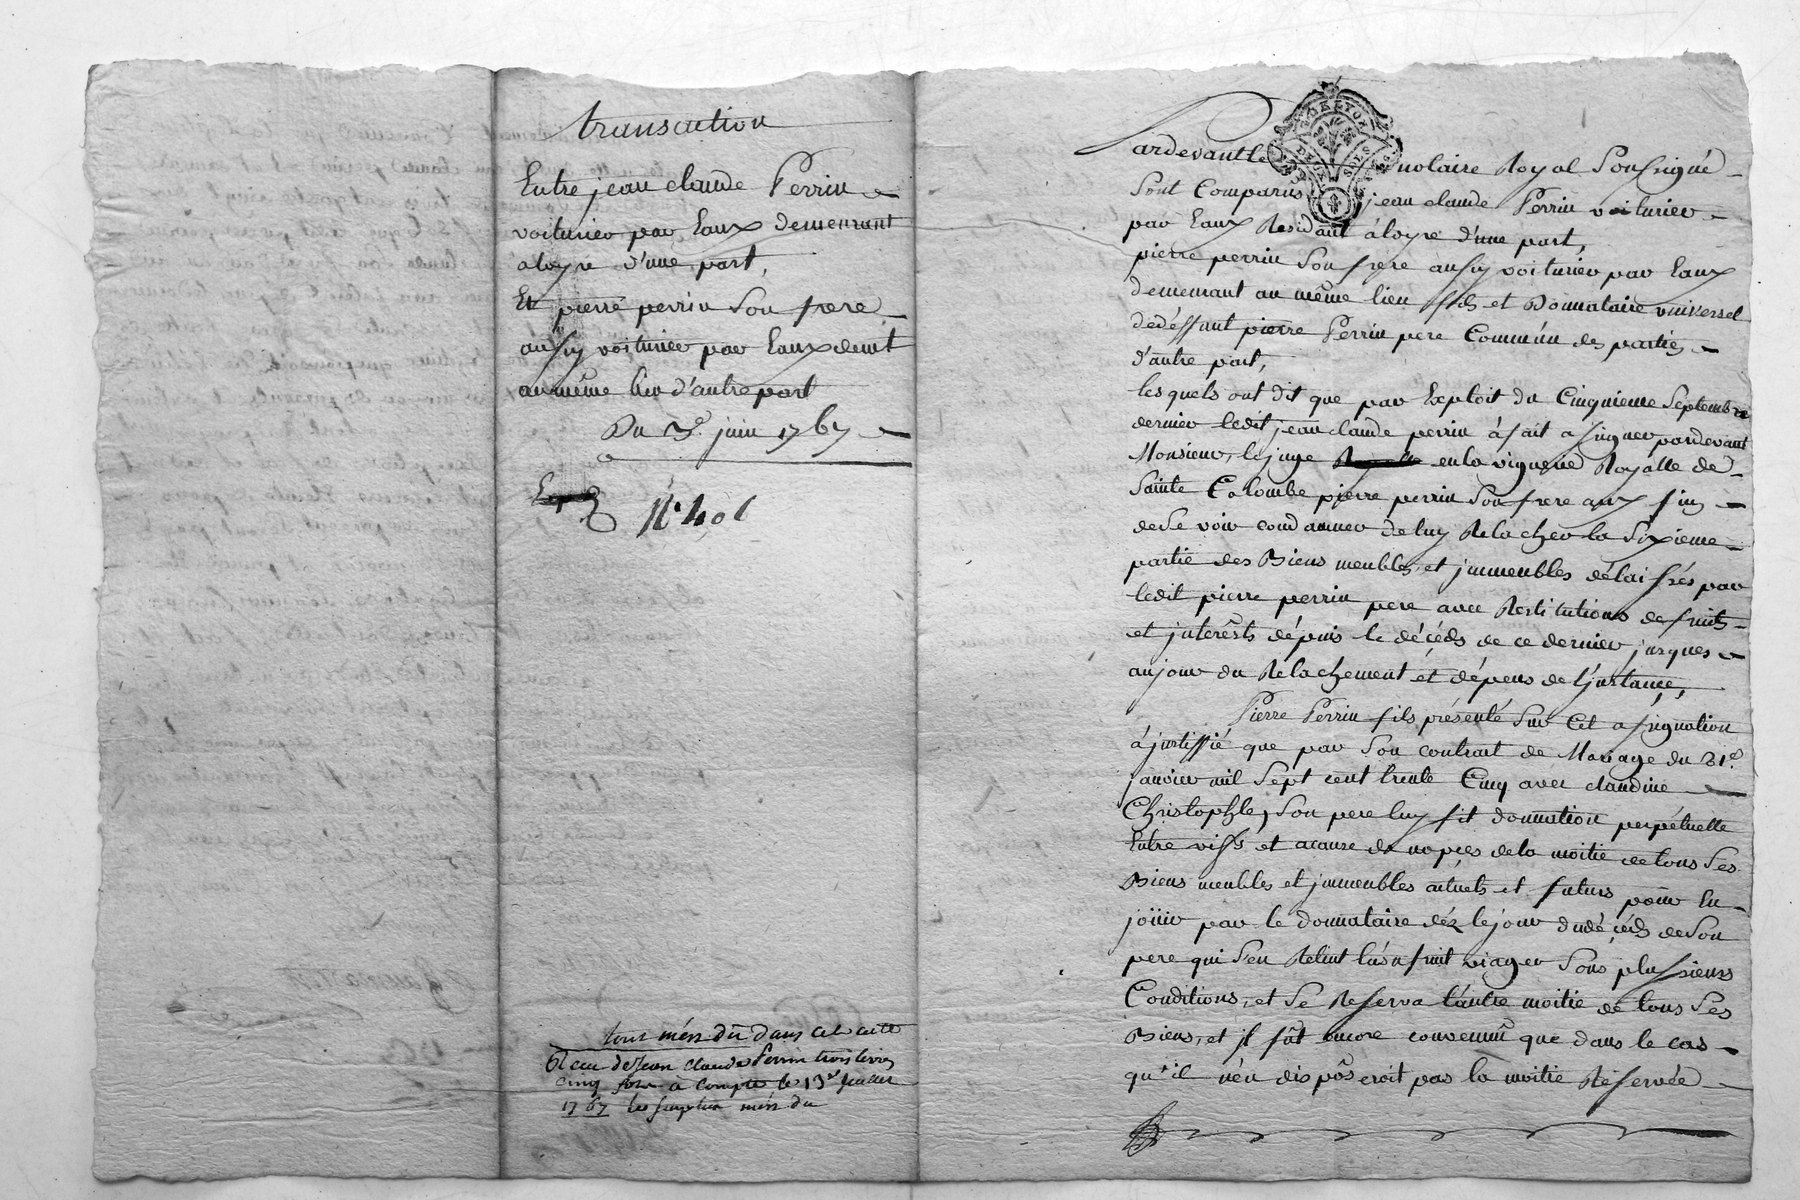 transaction
Entre jean claude Perrin
voiturier par Eaux demeurant
a loyre d'une part,
Et pierre perrin Son frere
aussy voiturier par Eaux demt
au même lieu d'autre part
Du 3e. juin 1767
No. 401
tout m'est dû dans cet acte
de Jean claude Perrin trois livres
cinq sols a compte le 13e Juillet
1767 le surplus m'est du
Pardevant le notaire Royal Soussigné
Sont Comparus jean claude Perrin voiturier
par Eaux Residant à loyre d'une part,
pierre perrin Son frere aussy voiturier par Eaux
demeurant au même lieu fils et Donnataire universel
de déffunt pierre Perrin pere Commun des parties
d'autre part,
les quels ont dit que par Exploit du Cinquieme Septembre
dernier ledit jean claude perrin à fait assigner pardevant
Monsieur, le juge en la viguerie Royalle de
Sainte Colombe pierre perrin Son frere aux fins
de Se voir condamner de luy Relacher la Sixieme
partie des Biens meubles, et jmmeubles délaissés par
ledit pierre perrin pere avec Restitutions de fruits
et jnterêsts dépuis le décéds de ce dernier jusques
au jour du Relachement et dépens de l'jnstance,
Pierre Perrin fils présenté Sur Cet assignation
à justiffié que par Son contrat de Mariage du 31e.
janvier mil Sept cent trente Cinq avec claudine
Christophle, Son pere luy fit donnation perpétuelle
Entre viffs et a cause de nopces de la moitié de tous Ses
Biens meubles et jmmeubles actuels et futurs pour En
joüir par le donnataire dés le jour du décéds de Son
pere qui S'en Retint l'usufruit viager Sous plussieurs
Conditions, et Se Reserva l'autre moitié de tous Ses
Biens, et jl fût encore convenu que dans le cas
qu'il n'en dispôseroit pas la moitié Réservée